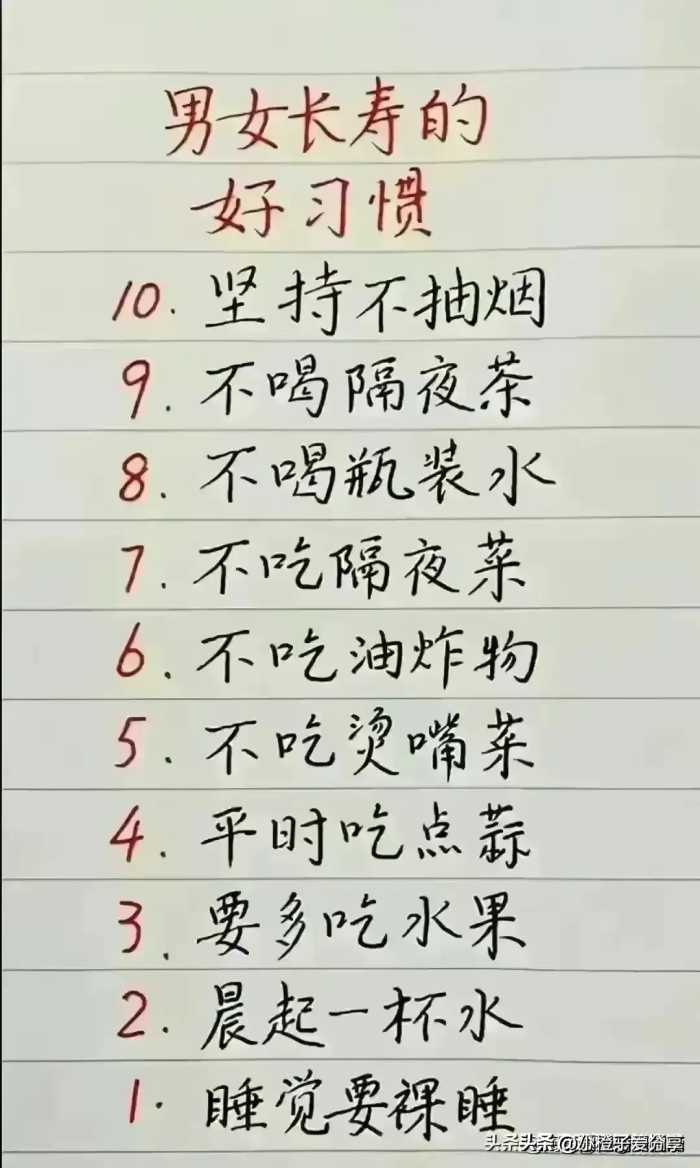 男女长寿的
好习惯
10. 坚持不抽烟
9. 不喝隔夜茶
8. 不喝瓶装水
7. 不吃隔夜菜
6. 不吃油炸物
5. 不吃烫嘴菜
4. 平时吃点蒜
3. 要多吃水果
2. 晨起一杯水
1. 睡觉要裸睡
头条